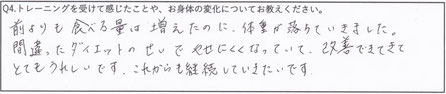 Q4.トレーニングを受けて感じたことや、お身体の変化についてお教えください。
前よりも食べる量は増えたのに、体重が落ちていきました。
間違ったダイエットのせいでやせにくくなっていて、改善できてきて
とてもうれしいです。これからも継続していきたいです。